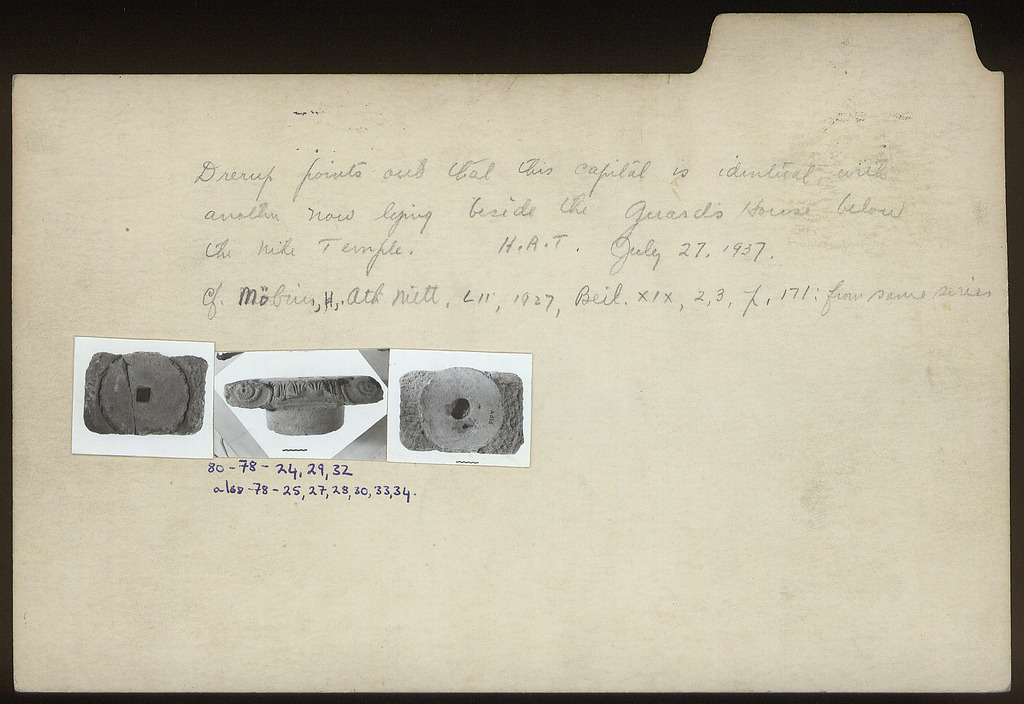 Drerup points out that this capital is identical with
another now lying beside the Guard's House below
the Nike Temple. H.A.T. July 27, 1937.
Cf. Möbius, H., Ath Mitt, LII, 1927, Beil. XIX, 2, 3, p. 171: from same series
80-78-24, 29, 32
also -78-25, 27, 28, 30, 33, 34.